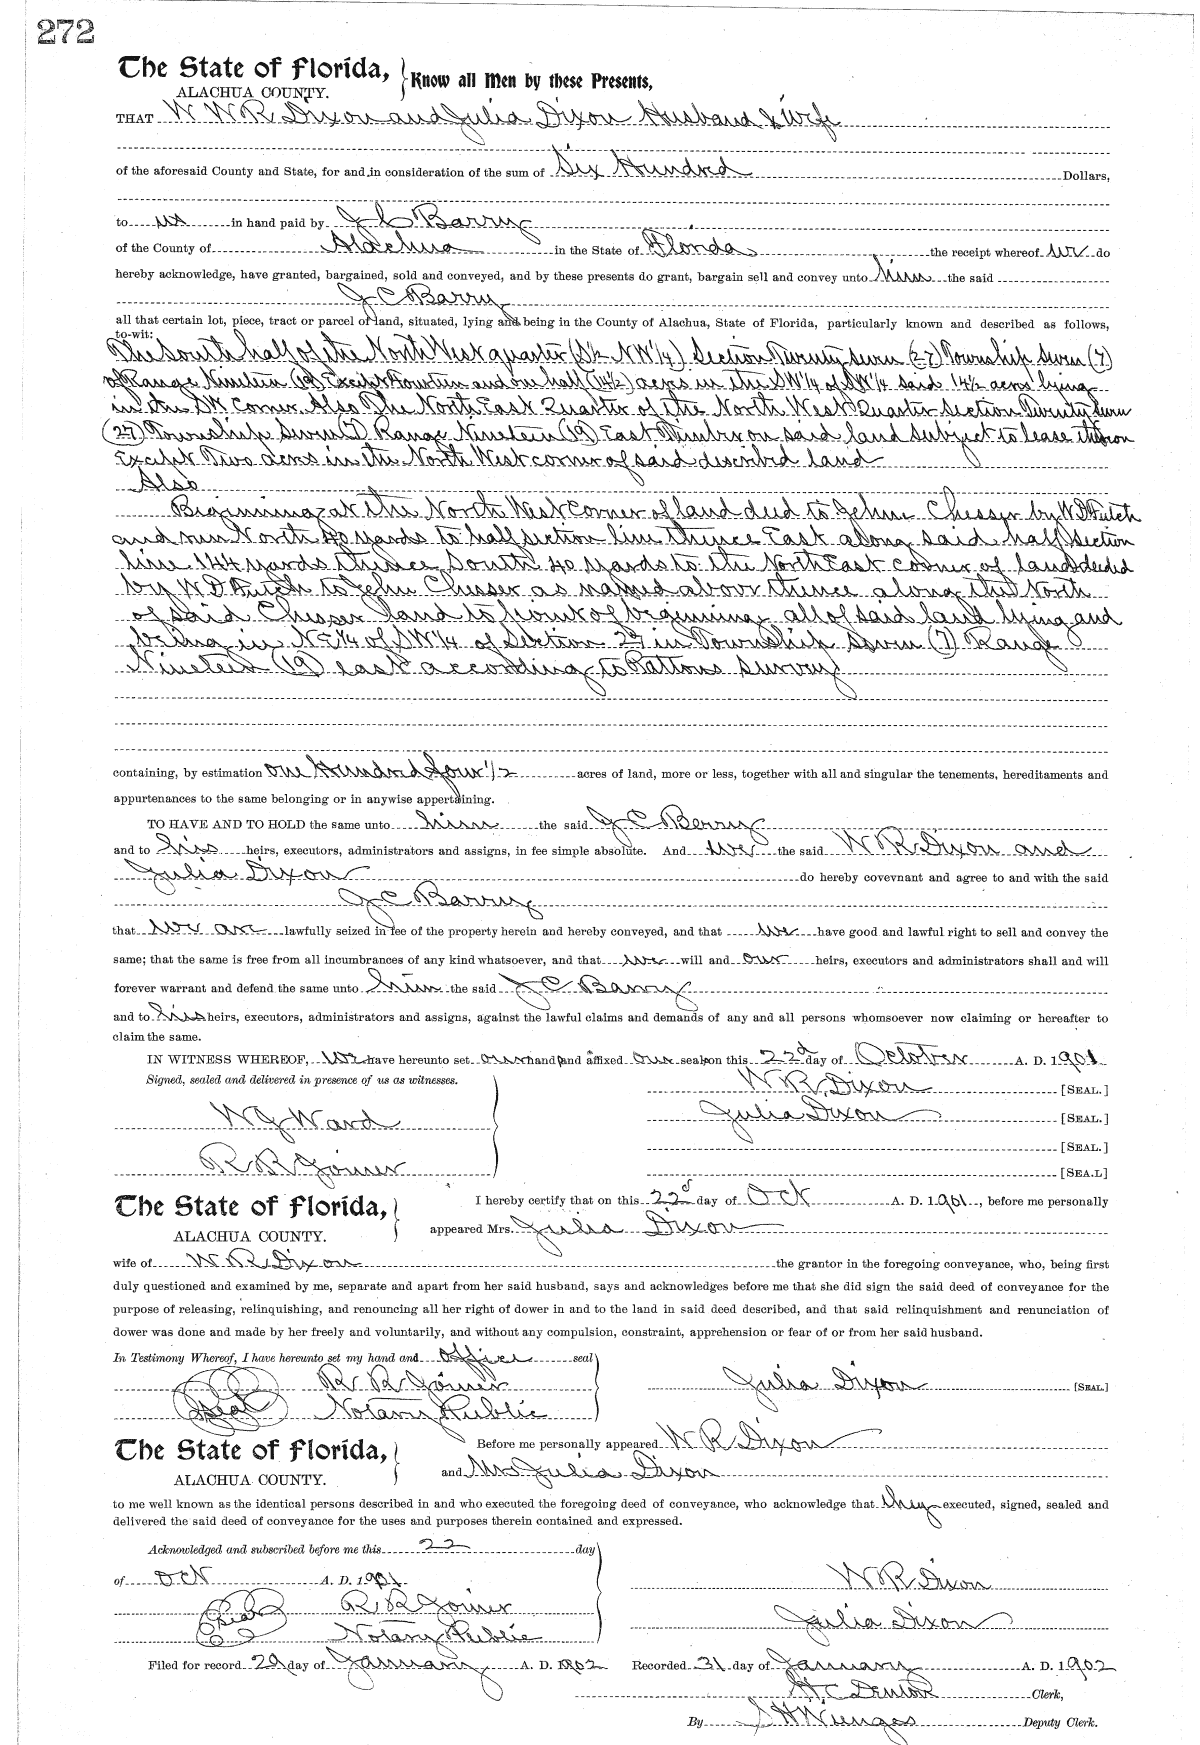 272
The State of Florida,
ALACHUA COUNTY.
Know all Men by these Presents,
THAT W W R Dixon and Julia Dixon Husband & Wife
of the aforesaid County and State, for and in consideration of the sum of Six Hundred Dollars,
to us in hand paid by J C Barry
of the County of Alachua in the State of Florida the receipt whereof we do
hereby acknowledge, have granted, bargained, sold and conveyed, and by these presents do grant, bargain sell and convey unto him the said
J C Barry
all that certain lot, piece, tract or parcel of land, situated, lying and being in the County of Alachua, State of Florida, particularly known and described as follows,
to-wit:
The South half of the North West quarter (S½ NW¼) Section Twenty seven (27) Township Seven (7)
of Range Nineteen (19) Except Fourteen and one half (14½) acres in the SW¼ of NW¼ said 14½ acres lying
in the SW Corner. Also The North East Quarter of the North West Quarter Section Twenty Seven
(27) Township Seven (7) Range Nineteen (19) East. Timber on said land subject to lease thereon
Except Two acres in the North West corner of said described land
Also
Beginning at the North West Corner of land deed to John Chesser by W D Futch
and run North 40 yards to half section line thence East along said half section
line 144 yards thence South 40 yards to the North East corner of land deeded
by W D Futch to John Chesser as named above thence along the North
of said Chesser land to point of beginning all of said land lying and
being in NE¼ of SW¼ of Section 27 in Township Seven (7) Range
Nineteen (19) east according to Pattons Survey
containing, by estimation One Hundred four ½ acres of land, more or less, together with all and singular the tenements, hereditaments and
appurtenances to the same belonging or in anywise appertaining.
TO HAVE AND TO HOLD the same unto him the said J C Berry
and to his heirs, executors, administrators and assigns, in fee simple absolute. And we the said W R Dixon and
Julia Dixon do hereby covevnant and agree to and with the said
J C Barry
that we are lawfully seized in fee of the property herein and hereby conveyed, and that we have good and lawful right to sell and convey the
same; that the same is free from all incumbrances of any kind whatsoever, and that we will and our heirs, executors and administrators shall and will
forever warrant and defend the same unto him the said J C Barry
and to his heirs, executors, administrators and assigns, against the lawful claims and demands of any and all persons whomsoever now claiming or hereafter to
claim the same.
IN WITNESS WHEREOF, We have hereunto set our hand and affixed our seal on this 22d day of October A. D. 1901
Signed, sealed and delivered in presence of us as witnesses.
W R Dixon [SEAL.]
W J Ward
Julia Dixon [SEAL.]
[SEAL.]
R R Joiner
[SEA.L]
The State of Florida,
ALACHUA COUNTY.
I hereby certify that on this 22d day of Oct A. D. 1901, before me personally
appeared Mrs. Julia Dixon
wife of W R Dixon the grantor in the foregoing conveyance, who, being first
duly questioned and examined by me, separate and apart from her said husband, says and acknowledges before me that she did sign the said deed of conveyance for the
purpose of releasing, relinquishing, and renouncing all her right of dower in and to the land in said deed described, and that said relinquishment and renunciation of
dower was done and made by her freely and voluntarily, and without any compulsion, constraint, apprehension or fear of or from her said husband.
In Testimony Whereof, I have hereunto set my hand and office seal
R R Joiner
Julia Dixon [SEAL]
Seal Notary Public
The State of Florida,
ALACHUA COUNTY.
Before me personally appeared W R Dixon
and Mrs Julia Dixon
to me well known as the identical persons described in and who executed the foregoing deed of conveyance, who acknowledge that they executed, signed, sealed and
delivered the said deed of conveyance for the uses and purposes therein contained and expressed.
Acknowledged and subscribed before me this 22 day
of Oct A. D. 1901
W R Dixon
Seal R R Joiner
Julia Dixon
Notary Public
Filed for record 29 day of January A. D. 1902 Recorded 31 day of January A. D. 1902
H C Denton Clerk,
By S H Wienges Deputy Clerk.